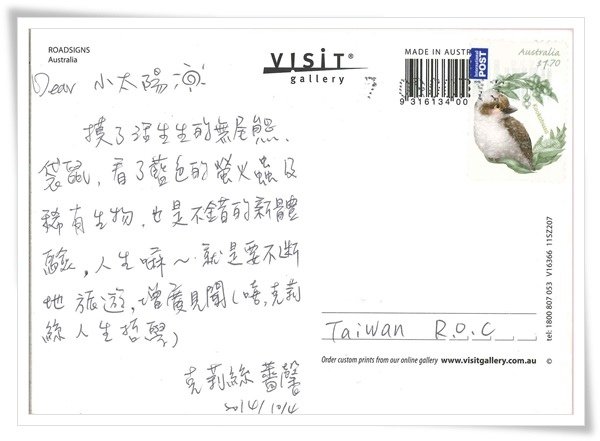 ROADSIGNS
Australia
VISIT®
gallery
MADE IN AUSTR
9 316134 00
International
POST
Australia
$1.70
Kookaburra
Dear 小太陽
摸了活生生的無尾熊、
袋鼠,看了藍色的螢火蟲及
稀有生物,也是不錯的新體
驗,人生嘛～就是要不斷
地旅遊,增廣見聞(嘻,克莉
絲人生哲學)
克莉絲薔馨
2014/10/4
Taiwan R.O.C
Order custom prints from our online gallery www.visitgallery.com.au
tel: 1800 807 053 V16366 11SZ207
©